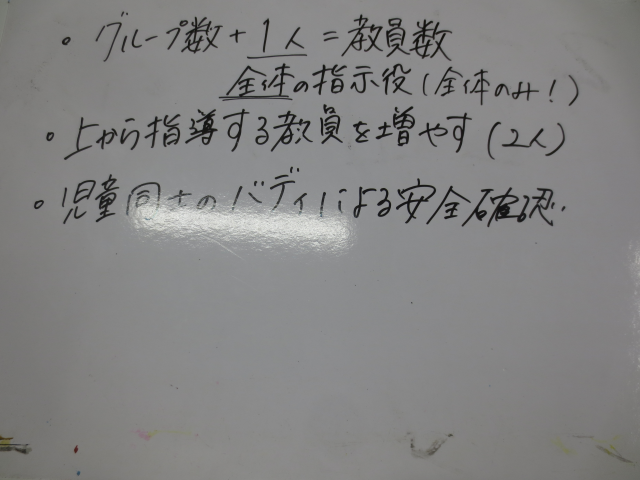 ・グループ数+1人=教員数
全体の指示役(全体のみ!)
・上から指導する教員を増やす(2人)
・児童同士のバディによる安全確認.